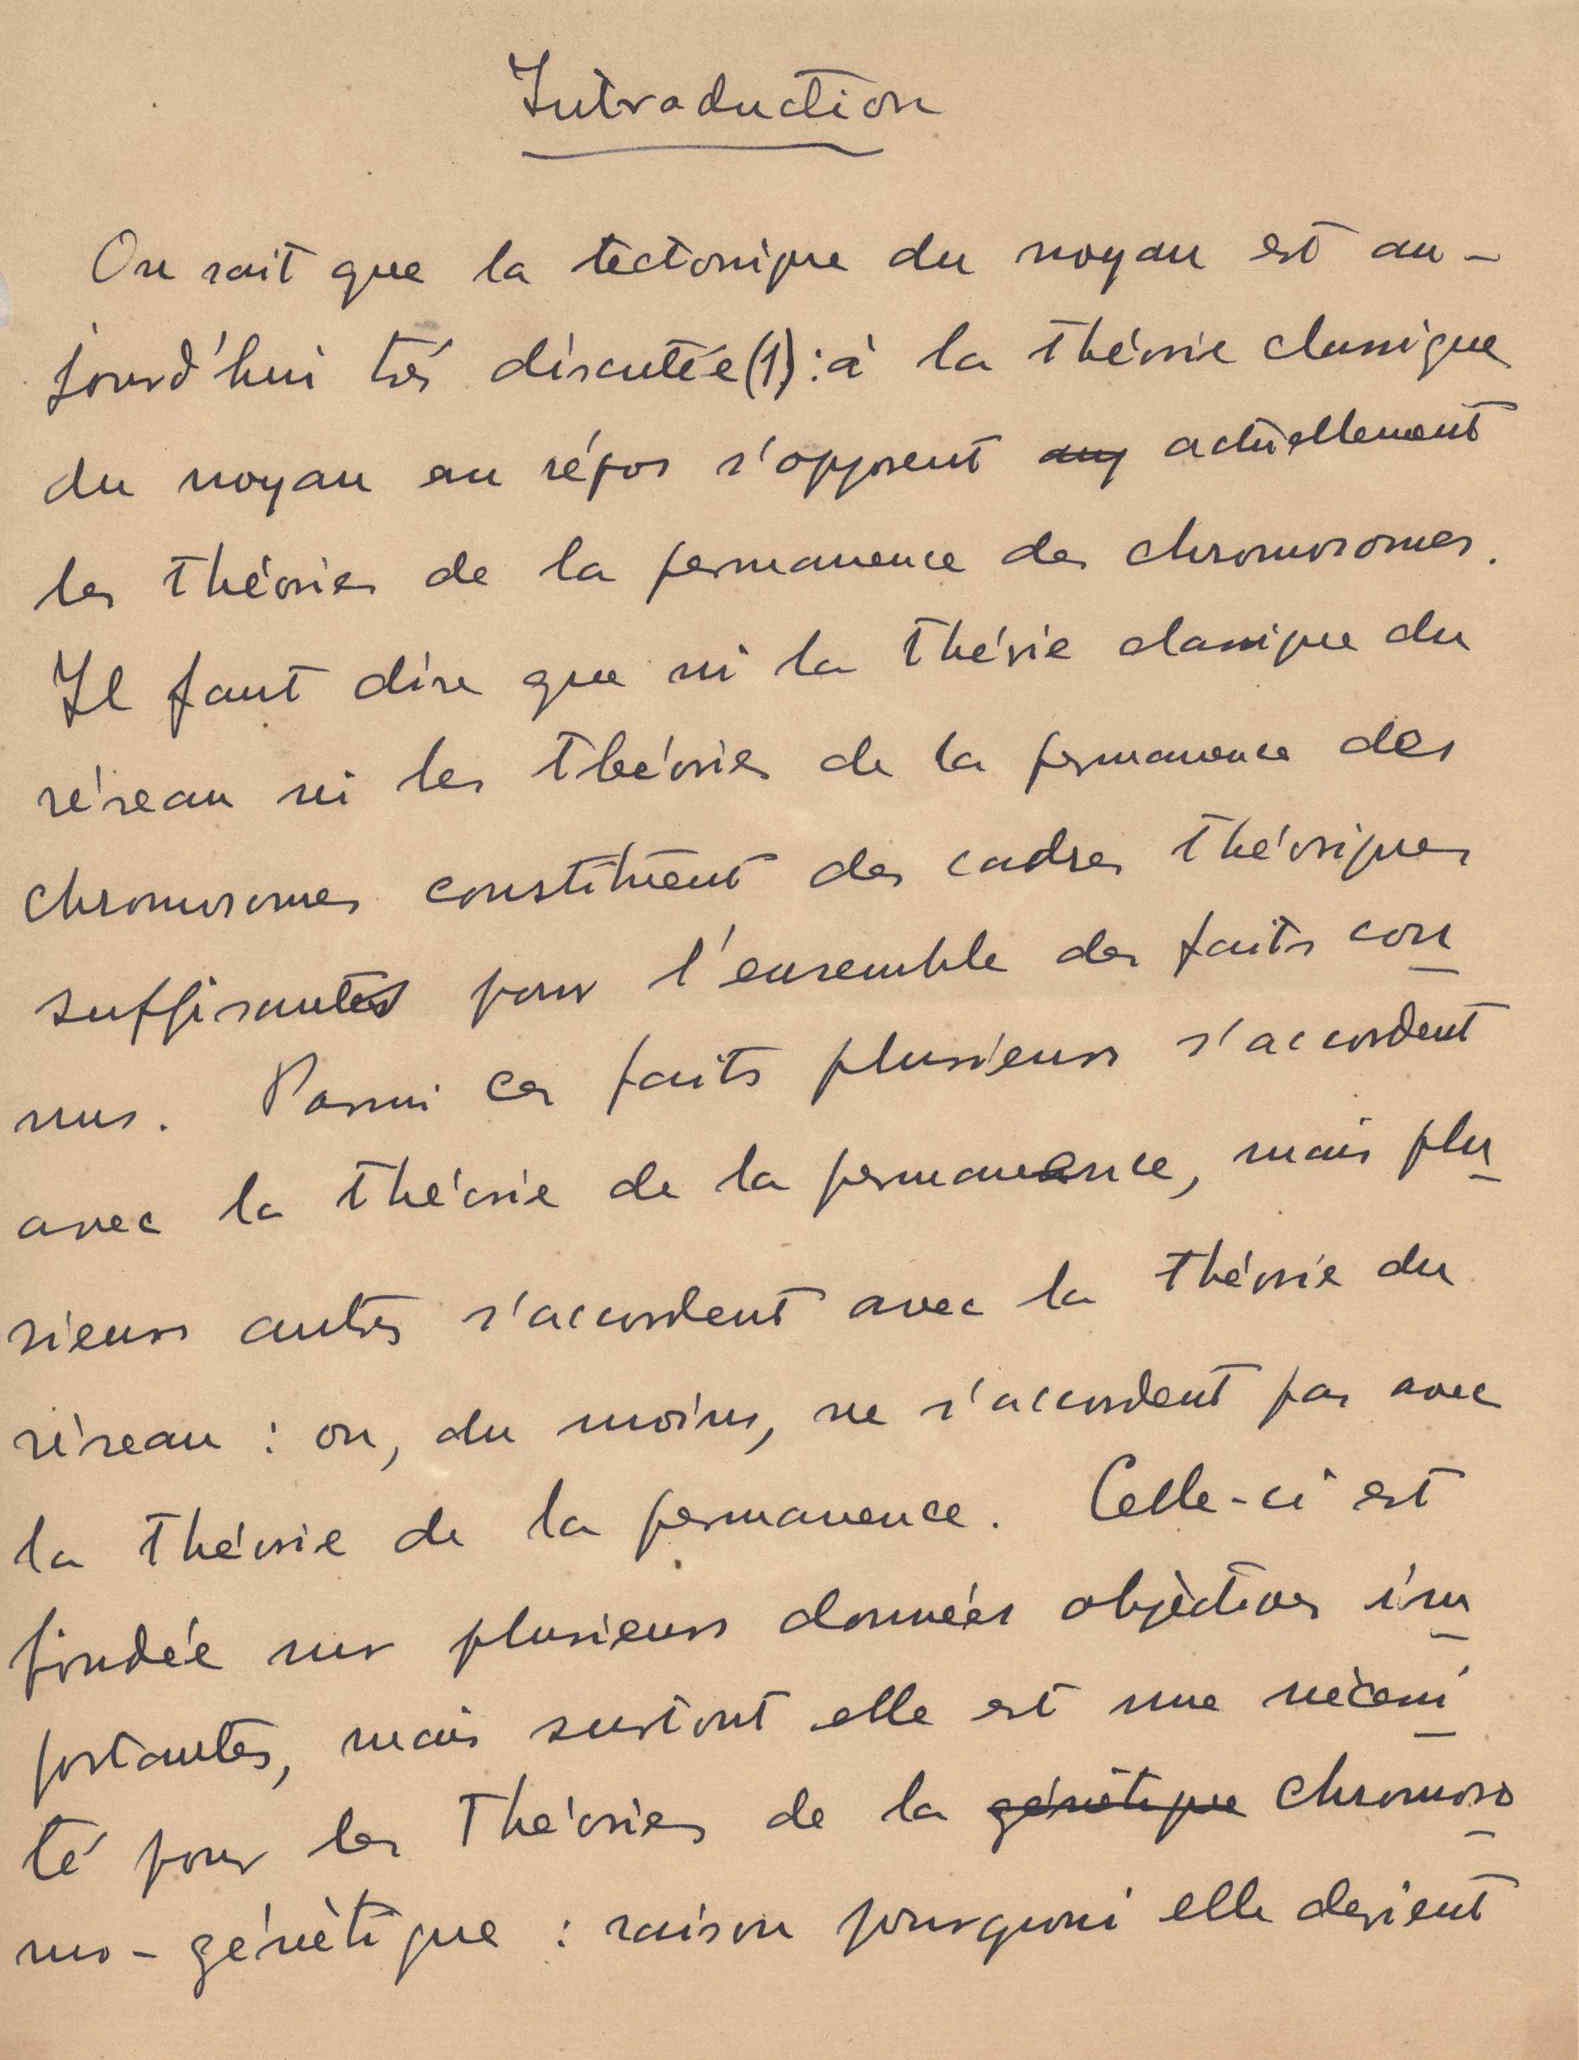 Introduction
On sait que la tectonique du noyau est au-
jourd'hui trés discutée (1): à la théorie classique
du noyau au répos s'opposent actuellement
les théories de la permanence des chromosomes.
Il faut dire que ni la théorie classique du
réseau ni les théories de la permanence des
chromosomes constituent des cadres théoriques
suffisantes pour l'ensemble des faits con
nus. Parmi ces faits plusieurs s'accordent
avec la théorie de la permanence, mais plu
sieurs autres s'accordent avec la théorie du
réseau : ou, du moins, ne s'accordent pas avec
la théorie de la permanence. Celle-ci est
fondée sur plusieurs données objèctives im
portantes, mais surtout elle est une nécessi
té pour les théories de la génètique chromoso
mo-génètique : raison pourquoi elle devient